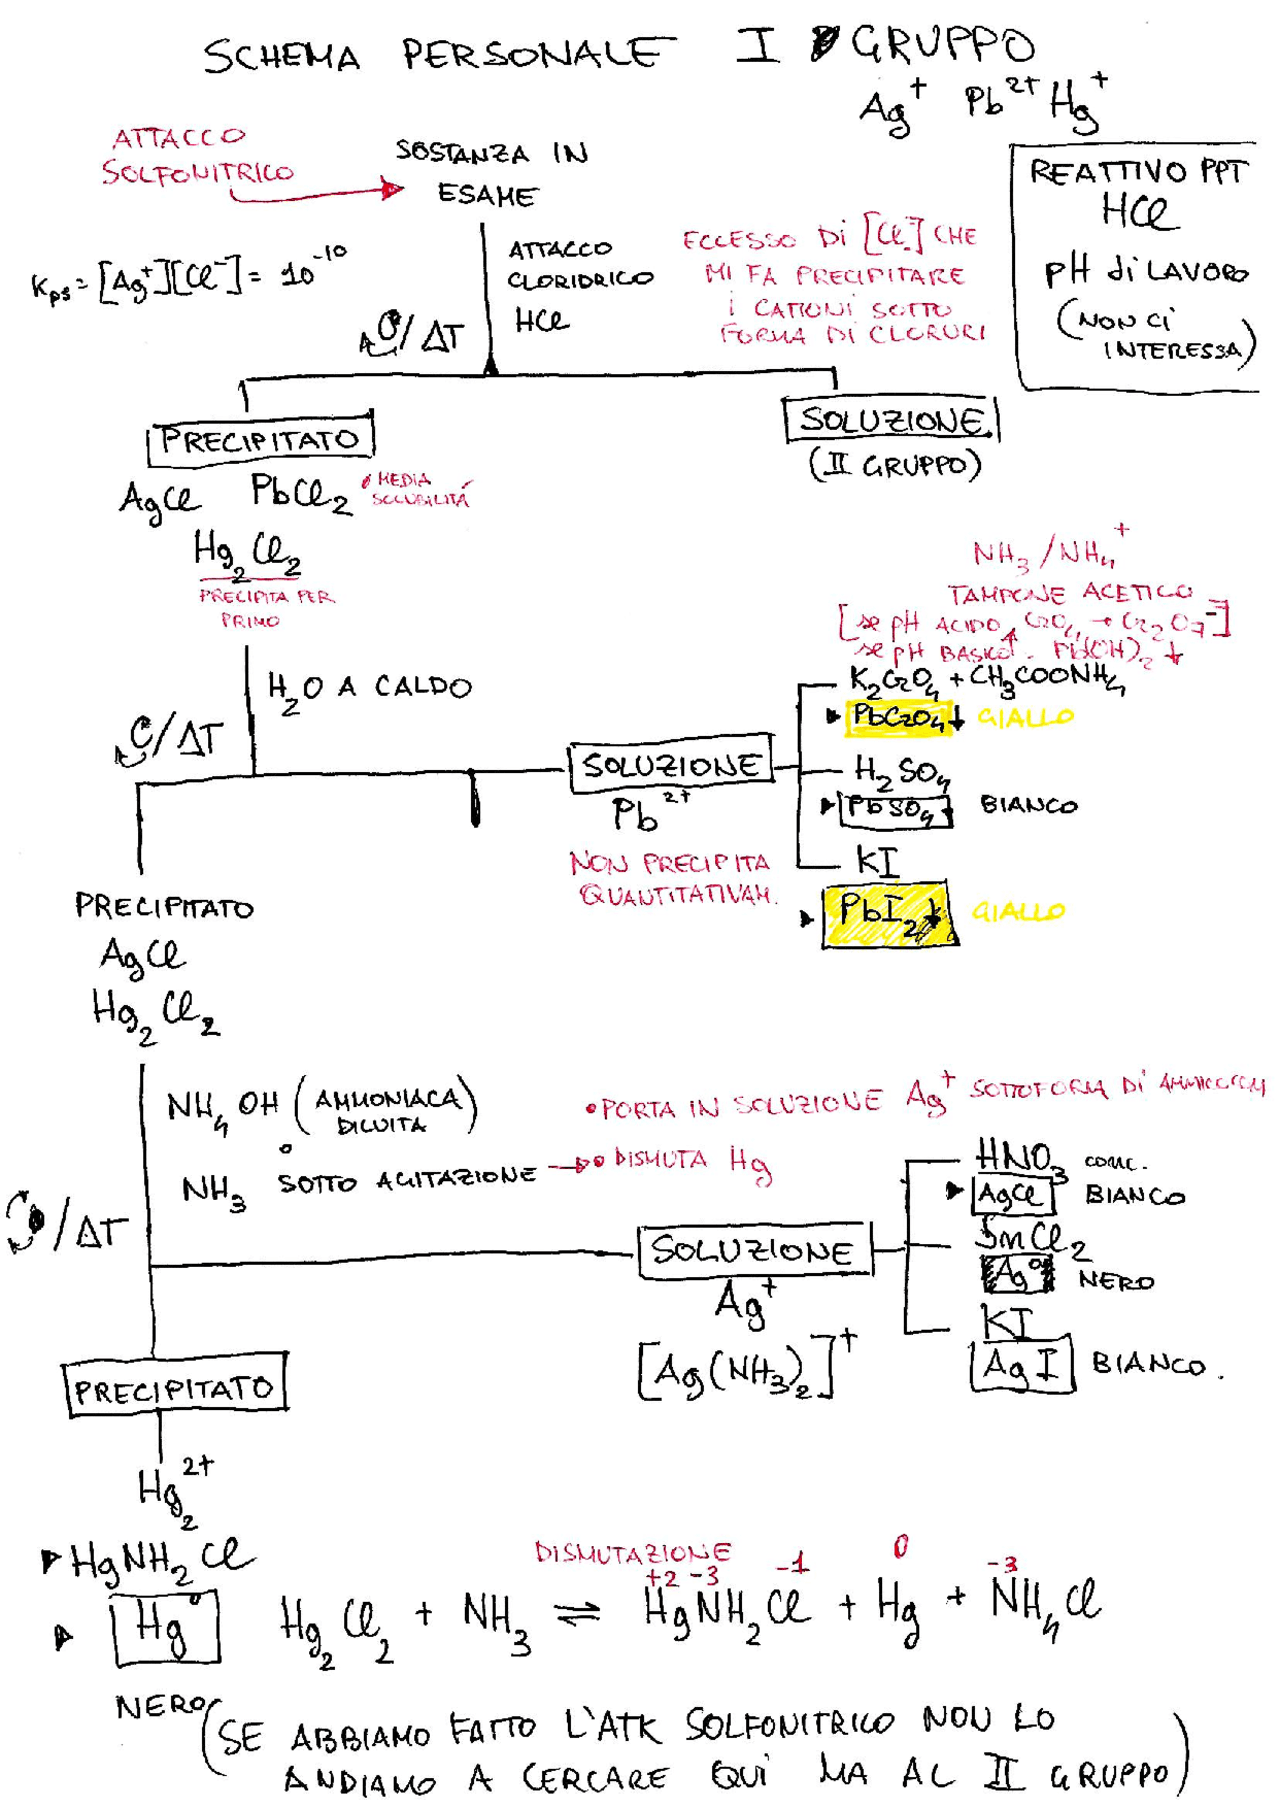 SCHEMA PERSONALE I GRUPPO
Ag⁺ Pb²⁺ Hg⁺
ATTACCO
SOLFONITRICO
SOSTANZA IN
ESAME
REATTIVO PPT
HCl
pH di LAVORO
(NON CI
INTERESSA)
Kps = [Ag⁺][Cl⁻] = 10⁻¹⁰
ATTACCO
CLORIDRICO
HCl
ECCESSO Di [Cl⁻] CHE
MI FA PRECIPITARE
i CATIONI SOTTO
FORMA DI CLORURI
/ΔT
PRECIPITATO
AgCl PbCl₂
• MEDIA
SOLUBILITÁ
Hg₂Cl₂
PRECIPITA PER
PRIMO
SOLUZIONE
(II GRUPPO)
H₂O A CALDO
/ΔT
SOLUZIONE
Pb²⁺
NON PRECIPITA
QUANTITATIVAM.
NH₃/NH₄⁺
TAMPONE ACETICO
[se pH ACIDO, CrO₄⁻ → Cr₂O₇⁻]
se pH BASICO. Pb(OH)₂ ↓
K₂CrO₄ + CH₃COONH₄
PbCrO₄ ↓ GIALLO
H₂SO₄
PbSO₄ ↓ BIANCO
KI
PbI₂ ↓ GIALLO
PRECIPITATO
AgCl
Hg₂Cl₂
NH₄OH (AMMONIACA
DILUITA)
o
NH₃ SOTTO AGITAZIONE →
• PORTA IN SOLUZIONE Ag⁺ SOTTOFORMA Di
• DISMUTA Hg
/ΔT
SOLUZIONE
Ag⁺
[Ag(NH₃)₂]⁺
HNO₃ conc.
AgCl BIANCO
SnCl₂
Ag⁰ NERO
KI
AgI BIANCO.
PRECIPITATO
Hg₂²⁺
HgNH₂Cl
Hg⁰
NERO
DISMUTAZIONE
+2 -3 -1 0 -3
Hg₂Cl₂ + NH₃ ⇌ HgNH₂Cl + Hg + NH₄Cl
(SE ABBIAMO FATTO L'ATK SOLFONITRICO NON LO
ANDIAMO A CERCARE QUI MA AL II GRUPPO)